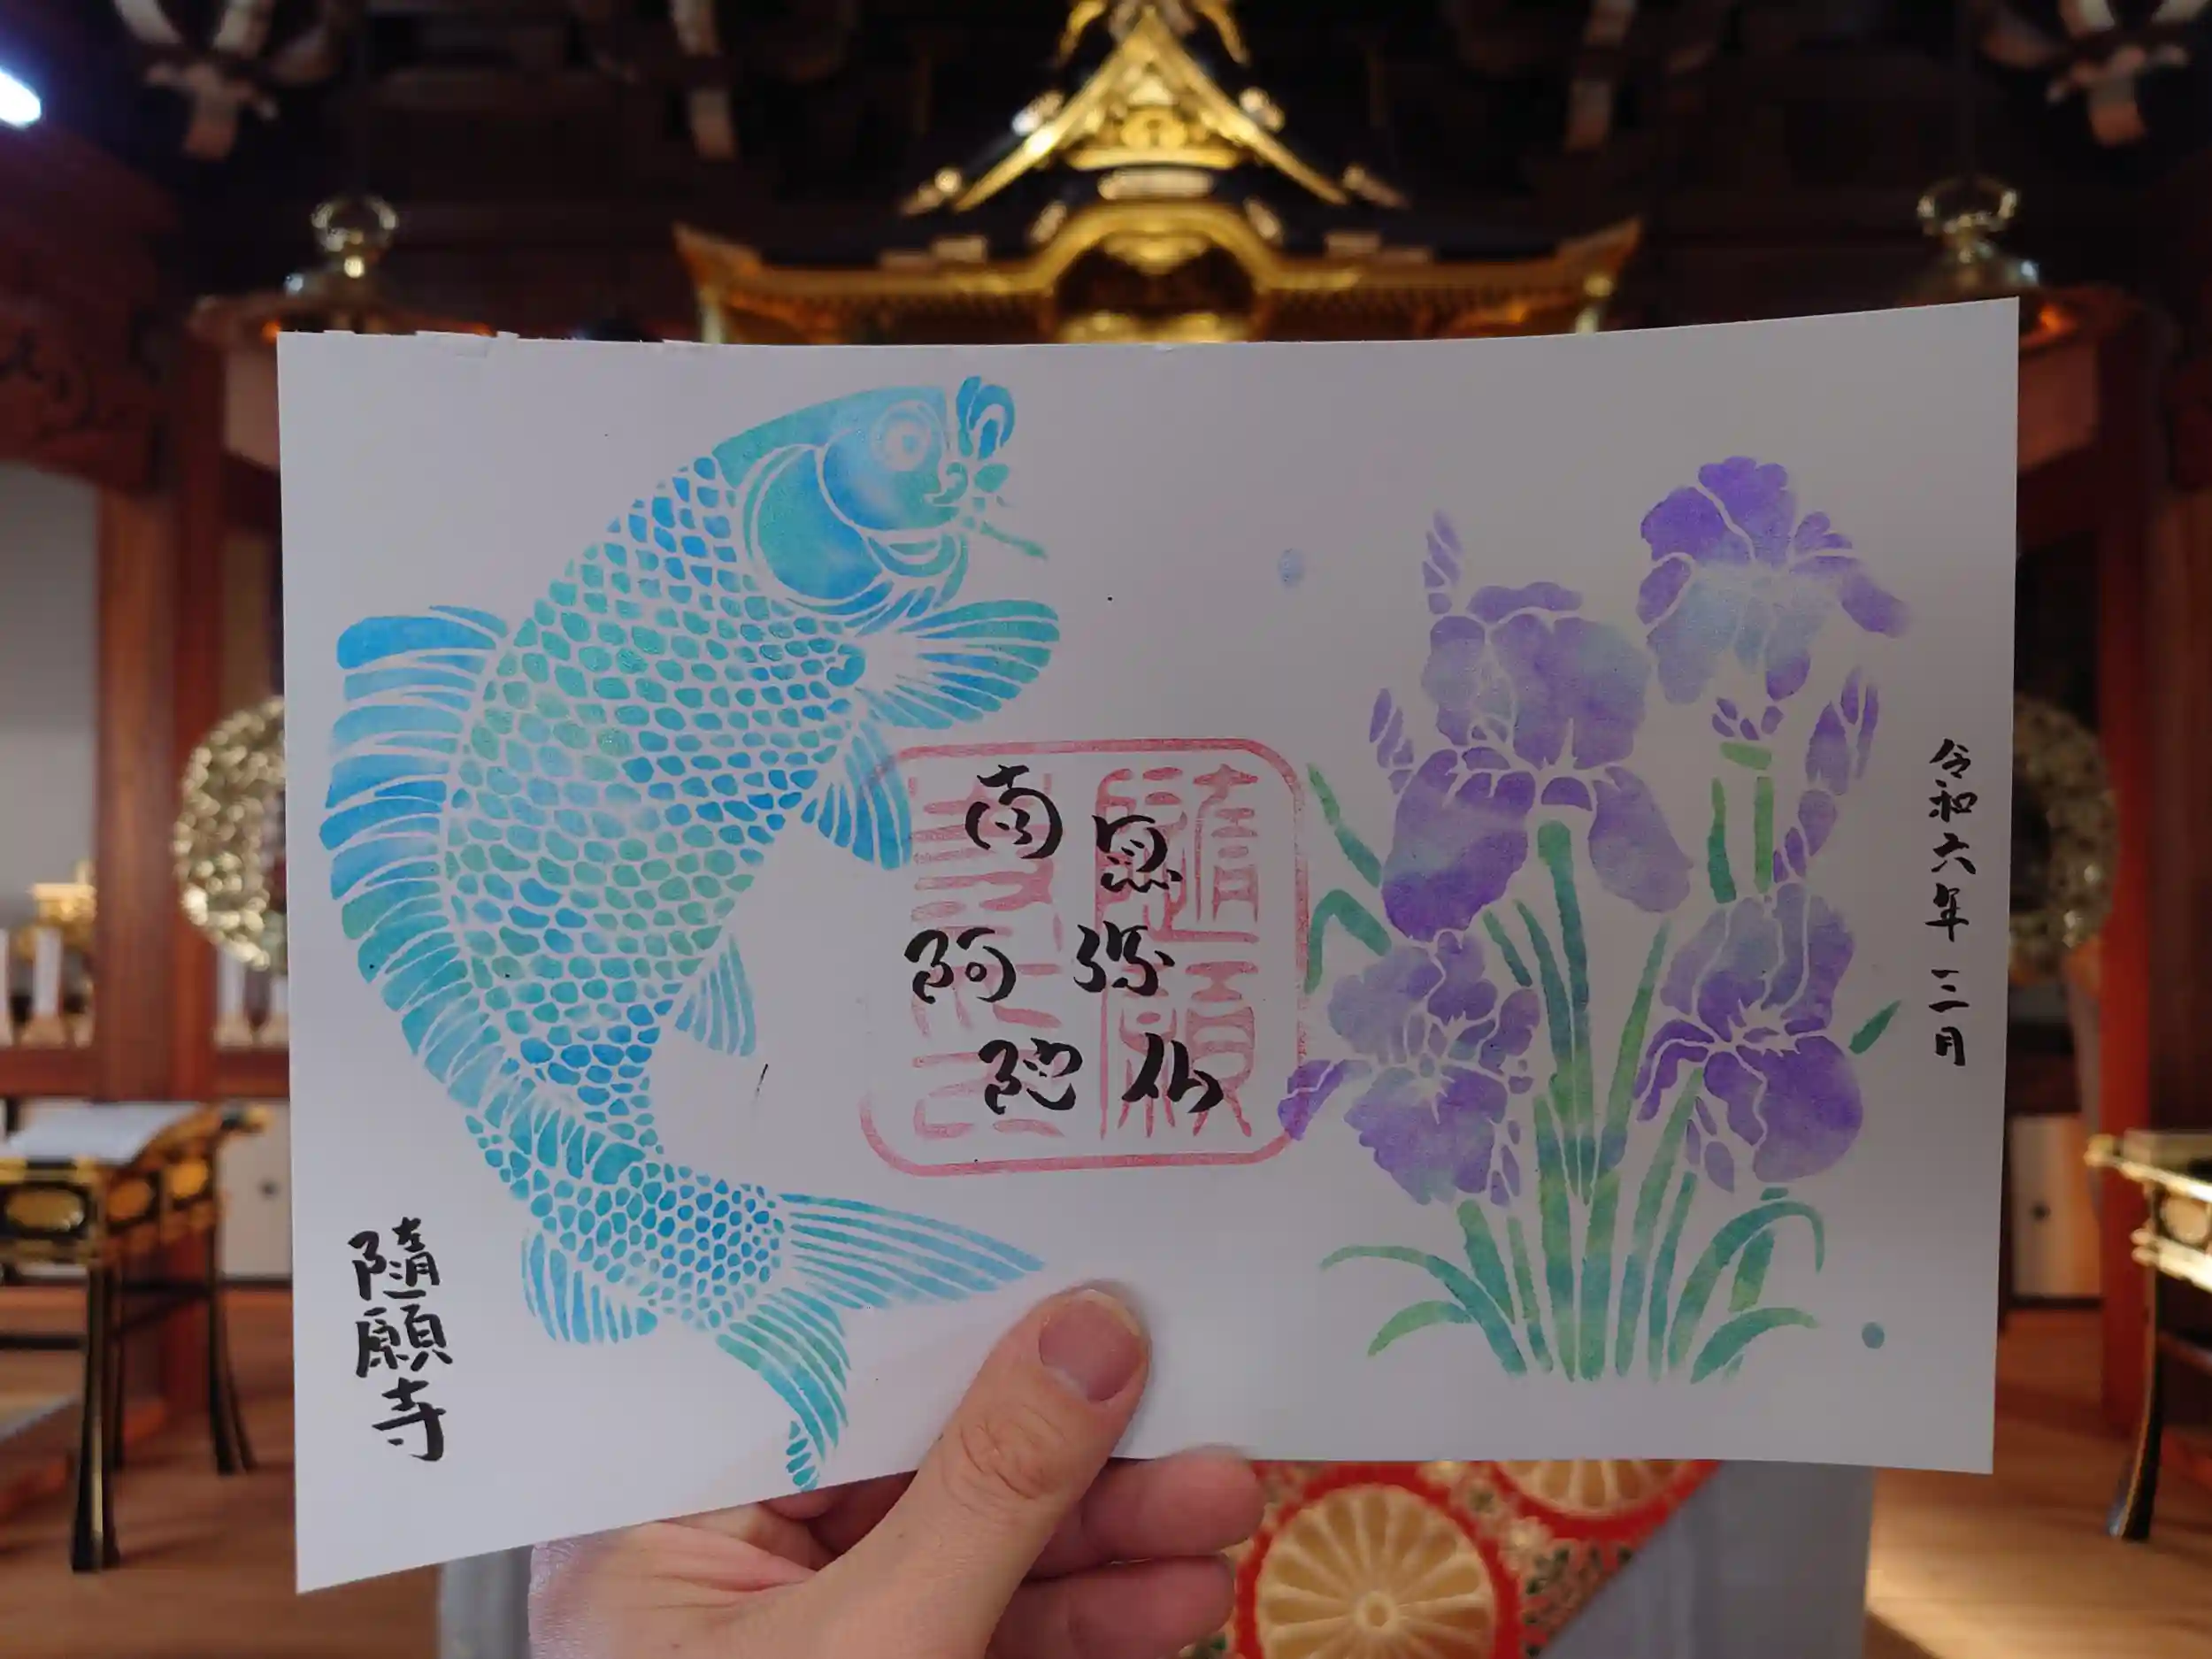 令和六年三月
南無
阿弥
陀仏
隨願寺